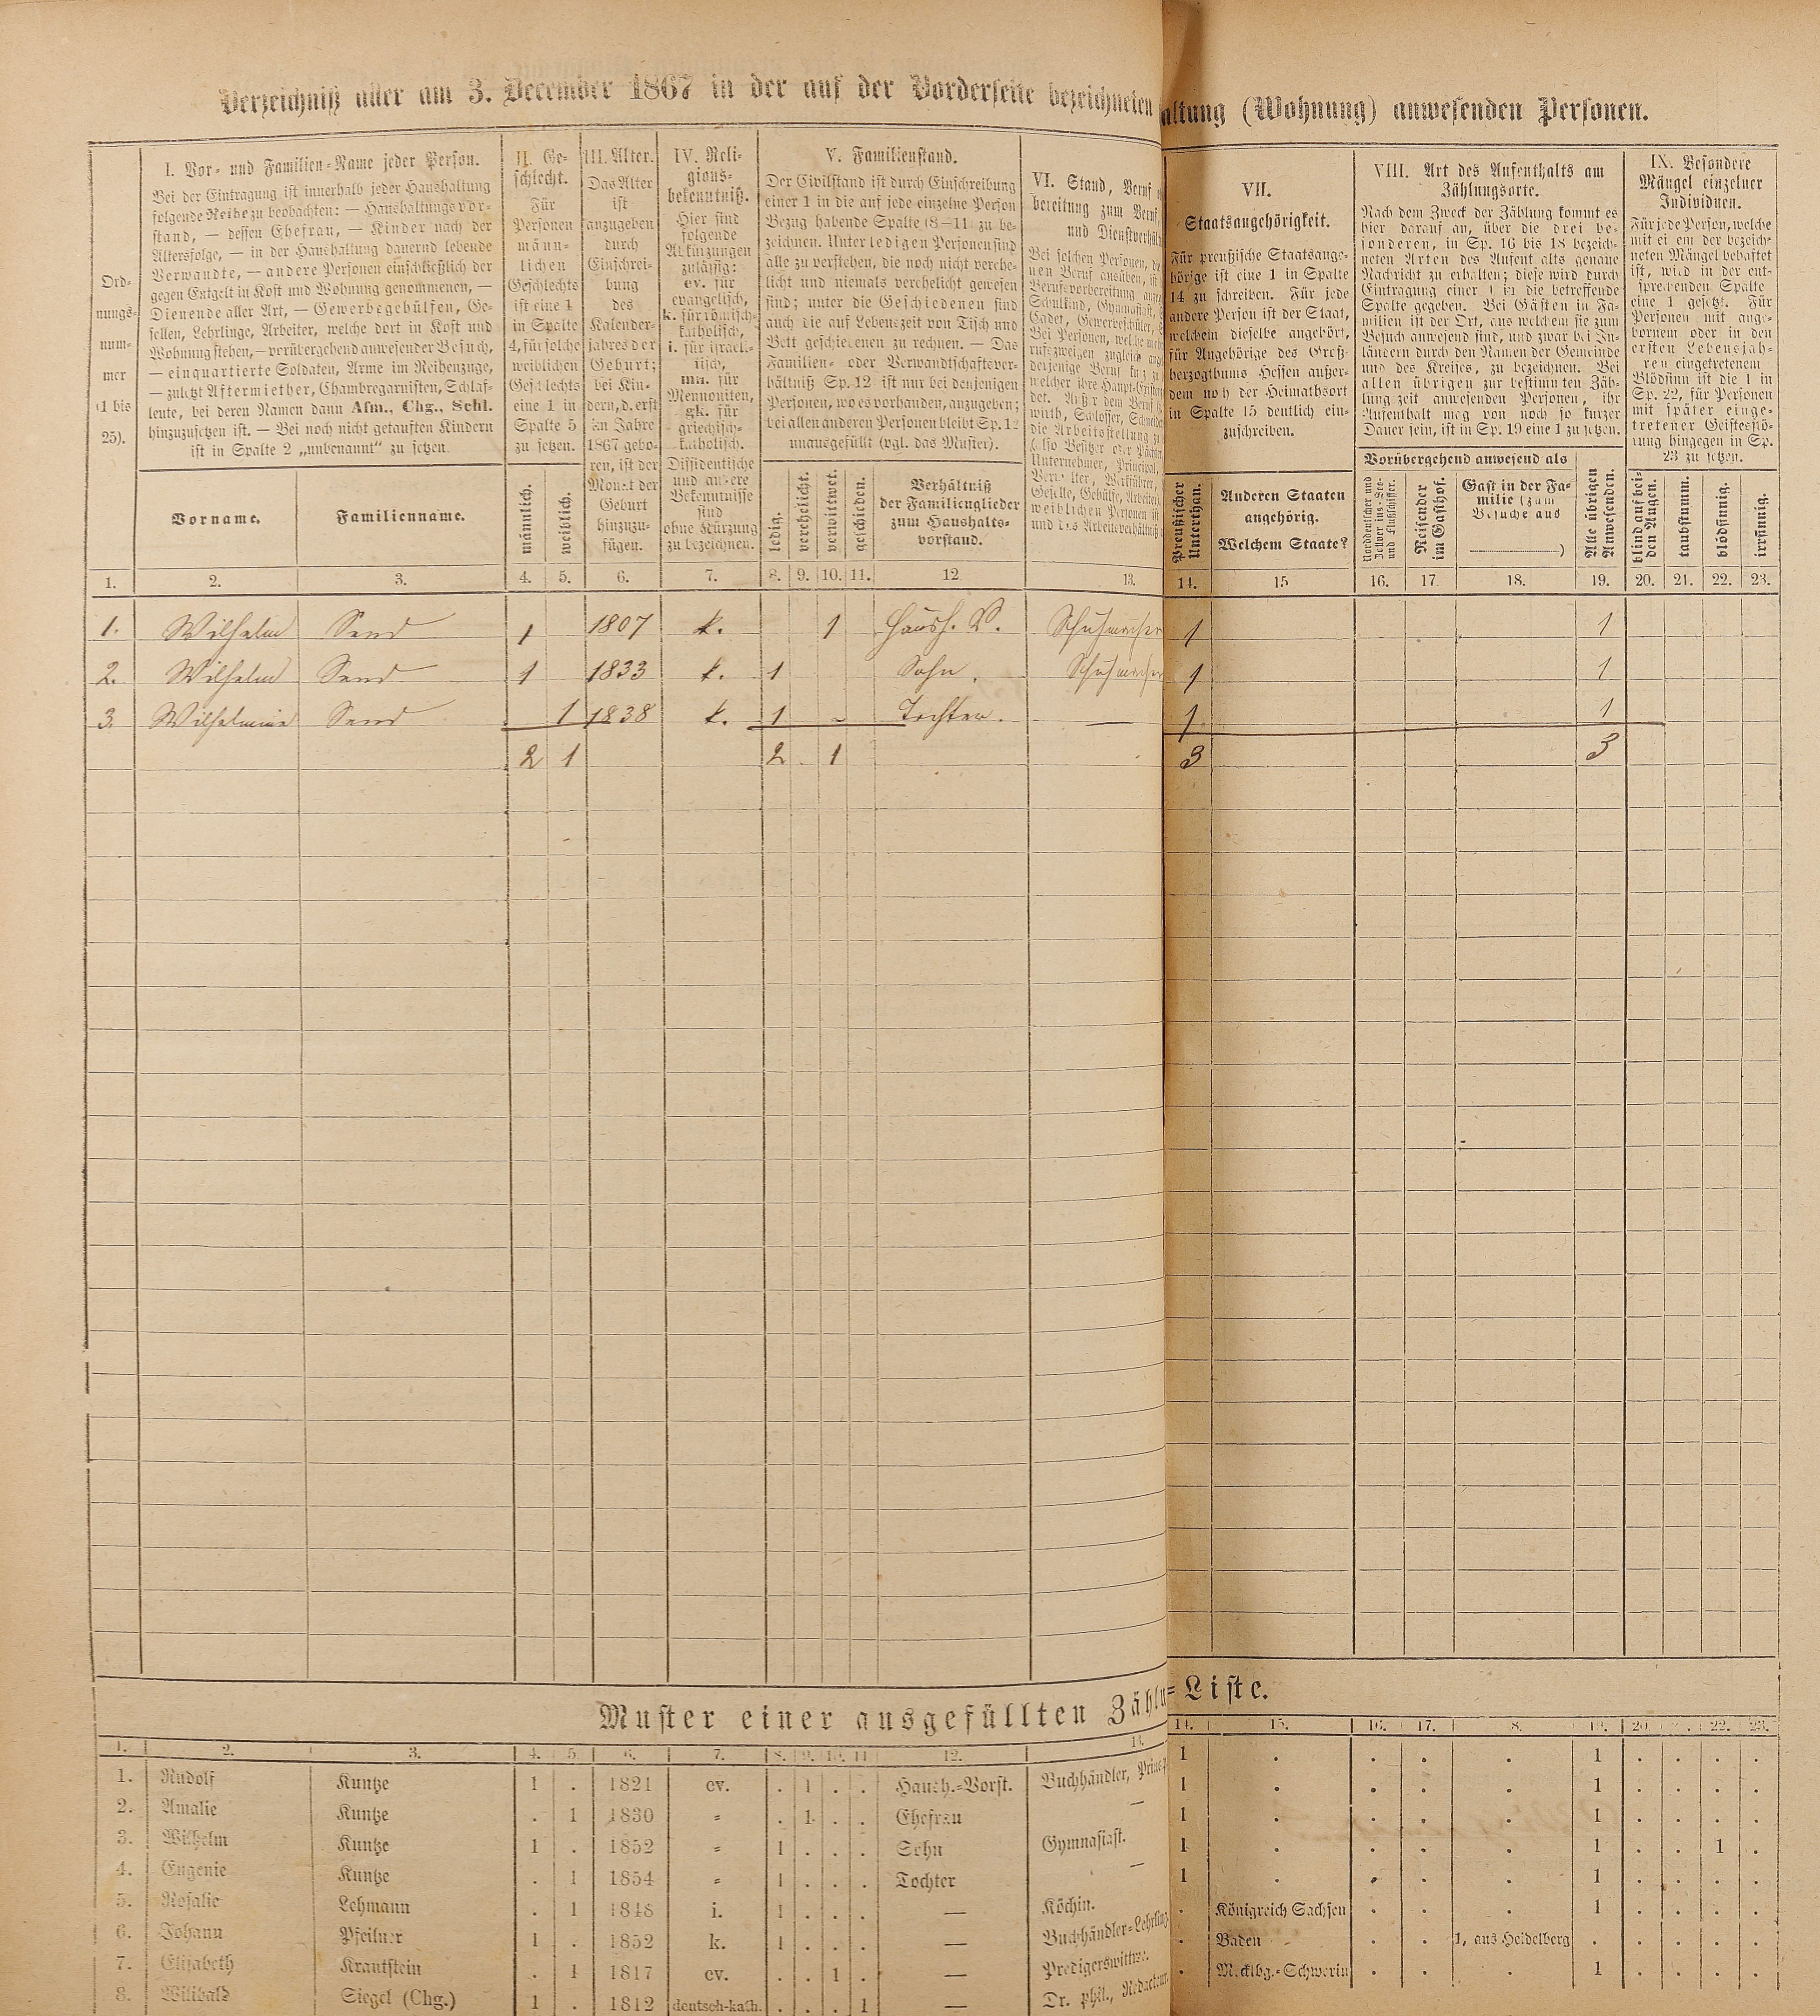 Verzeichniß aller am 3. December 1867 in der auf der Vorderseite bezeichneten altung (Wohnung) anwesenden Personen.
Ord-
nungs-
num-
mer
(1 bis
25).
I. Vor- und Familien-Name jeder Person.
Bei der Eintragung ist innerhalb jeder Haushaltung
folgende Reihe zu beobachten: — Haushaltungsvor-
stand, — dessen Ehefrau, — Kinder nach der
Altersfolge, — in der Haushaltung dauernd lebende
Verwandte, — andere Personen einschließlich der
gegen Entgelt in Kost und Wohnung genommenen, —
Dienende aller Art, — Gewerbegehülfen, Ge-
sellen, Lehrlinge, Arbeiter, welche dort in Kost und
Wohnung stehen, — vorübergehend anwesender Besuch,
— einquartierte Soldaten, Arme im Reihenzuge,
— zuletzt Aftermiether, Chambregarnisten, Schlaf-
leute, bei deren Namen dann Afm., Chg., Schl.
hinzuzusetzen ist. — Bei noch nicht getauften Kindern
ist in Spalte 2 „unbenannt“ zu setzen.
Vorname.
Familienname.
II. Ge-
schlecht.
Für
Personen
männ-
lichen
Geschlechts
ist eine 1
in Spalte
4, für solche
weiblichen
Geschlechts
eine 1 in
Spalte 5
zu setzen.
männlich.
weiblich.
III. Alter.
Das Alter
ist
anzugeben
durch
Einschrei-
bung
des
Kalender-
jahres der
Geburt;
bei Kin-
dern, d. erst
im Jahre
1867 gebo-
ren, ist der
Monat der
Geburt
hinzuzu-
fügen.
IV. Reli-
gions-
bekenntniß.
Hier sind
folgende
Abkürzungen
zulässig:
ev. für
evangelisch,
k. für römisch-
katholisch,
i. für israeli-
tisch,
mn. für
Mennoniten,
gk. für
griechisch-
katholisch.
Dissidentische
und andere
Bekenntnisse
sind
ohne Kürzung
zu bezeichnen.
V. Familienstand.
Der Civilstand ist durch Einschreibung
einer 1 in die auf jede einzelne Person
Bezug habende Spalte (8—11) zu be-
zeichnen. Unter ledigen Personen sind
alle zu verstehen, die noch nicht verehe-
licht und niemals verehelicht gewesen
sind; unter die Geschiedenen sind
auch die auf Lebenszeit von Tisch und
Bett geschiedenen zu rechnen. — Das
Familien- oder Verwandtschaftsver-
hältniß Sp. 12 ist nur bei denjenigen
Personen, wo es vorhanden, anzugeben;
bei allen anderen Personen bleibt Sp. 12
unausgefüllt (vgl. das Muster).
ledig.
verehelicht.
verwittwet.
geschieden.
Verhältniß
der Familienglieder
zum Haushalts-
vorstand.
VI. Stand, Beruf
bereitung zum Beruf,
und Dienstverhält
Bei solchen Personen, die
nen Beruf ausüben, ist
Berufsvorbereitung
Schulkind, Gymnasiast,
Cadet, Gewerbeschüler,
Bei Personen, welche
rufszweigen zugleich
derjenige Beruf
welcher ihre Haupt-
det. Außer dem Beruf
wirth, Schlosser, Schneider
die Arbeitsstellung zu
(also Besitzer oder Pächter,
Unternehmer, Principal,
Verwalter, Werkführer,
Geselle, Gehülfe, Arbeiter
weiblichen Personen ist
und das Arbeitsverhältniß
VII.
Staatsangehörigkeit.
Für preußische Staatsange-
hörige ist eine 1 in Spalte
14 zu schreiben. Für jede
andere Person ist der Staat,
welchem dieselbe angehört,
für Angehörige des Groß-
herzogthums Hessen außer-
dem noch der Heimathsort
in Spalte 15 deutlich ein-
zuschreiben.
Preußischer Unterthan.
Anderen Staaten
angehörig.
Welchem Staate?
VIII. Art des Aufenthalts am
Zählungsorte.
Nach dem Zweck der Zählung kommt es
hier darauf an, über die drei be-
sonderen, in Sp. 16 bis 18 bezeich-
neten Arten des Aufenthalts genaue
Nachricht zu erhalten; diese wird durch
Eintragung einer 1 in die betreffende
Spalte gegeben. Bei Gästen in Fa-
milien ist der Ort, aus welchem sie zum
Besuch anwesend sind, und zwar bei In-
ländern durch den Namen der Gemeinde
und des Kreises, zu bezeichnen. Bei
allen übrigen zur bestimmten Zäh-
lungszeit anwesenden Personen, ihr
Aufenthalt mag von noch so kurzer
Dauer sein, ist in Sp. 19 eine 1 zu setzen.
Vorübergehend anwesend als
Norddeutscher und Zollvereins-See- und Flußschiffer.
Reisender im Gasthof.
Gast in der Fa-
milie (zum
Besuche aus
)
Alle übrigen Anwesenden.
IX. Besondere
Mängel einzelner
Individuen.
Für jede Person, welche
mit einem der bezeich-
neten Mängel behaftet
ist, wird in der ent-
sprechenden Spalte
eine 1 gesetzt. Für
Personen mit ange-
bornem oder in den
ersten Lebensjah-
ren eingetretenem
Blödsinn ist die 1 in
Sp. 22, für Personen
mit später einge-
tretener Geistesstö-
rung hingegen in Sp.
23 zu setzen.
blind auf bei-
den Augen.
taubstumm.
blödsinnig.
irrsinnig.
1. 2. 3. 4. 5. 6. 7. 8. 9. 10. 11. 12. 13. 14. 15. 16. 17. 18. 19. 20. 21. 22. 23.
1. Wilhelm Send 1 1807 k. 1 Haush. V. Schuhmacher 1 1
2. Wilhelm Send 1 1833 k. 1 Sohn. Schuhmacher 1 1
3. Wilhelmine Send 1 1838 k. 1 Tochter. — 1 1
2 1 2 1 3 3
Muster einer ausgefüllten Zähl = Liste.
1. 2. 3. 4. 5. 6. 7. 8. 9. 10. 11. 12. 13. 14. 15. 16. 17. 8. 19. 20. 22. 23.
1. Rudolf Kuntze 1 . 1821 ev. . 1 . . Haush.-Vorst. Buchhändler, Princip 1 . . . . 1 . . . .
2. Amalie Kuntze . 1 1830 = . 1 . . Ehefrau — 1 . . . . 1 . . . .
3. Wilhelm Kuntze 1 . 1852 = 1 . . . Sohn Gymnasiast. 1 . . . . 1 . . . .
4. Eugenie Kuntze . 1 1854 = 1 . . . Tochter — 1 . . . . 1 . . 1 .
5. Rosalie Lehmann . 1 1848 i. 1 . . . — Köchin. 1 . . . . 1 . . . .
6. Johann Pfeilner 1 . 1852 k. 1 . . . — Buchhändler-Lehrling . Königreich Sachsen . . . 1 . . . .
7. Elisabeth Krautstein . 1 1817 ev. . . 1 . — Predigerswittwe. . Baden . . 1, aus Heidelberg . . . . .
8. Wilibald Siegel (Chg.) 1 . 1812 deutsch-kath. . . . 1 — Dr. phil., Redacteur. . Mecklbg.-Schwerin . . . 1 . . . .